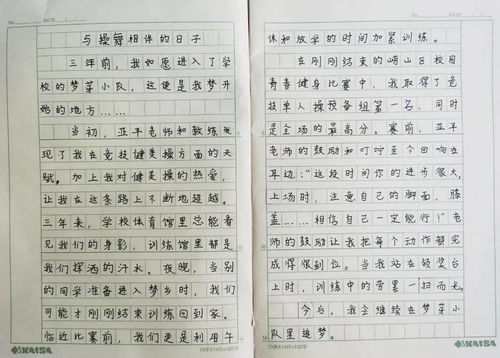 No. DATE
与操舞相伴的日子
三年前，我如愿进入了学
校的梦芽小队，这便是我梦开
始的地方……
当初，亚平老师和教练发
现了我在竞技健美操方面的天
赋。加上我对健美操的热爱，
让我在这条路上不断地超越。
三年来，学校体育馆里总能看
见我们的身影，训练馆里都是
我们挥洒的汗水。夜晚，当别
的同学准备进入梦乡时，我们
可能才刚刚结束训练回到家。
临近比赛前，我们更是利用午
KAISA
休和放学的时间加紧训练。
在刚刚结束的崂山区校园
青春健身比赛中，我取得了竞
技单人操预备组第一名，同时
是全场的最高分。赛前，亚平
老师的鼓励和叮咛至今回响在
耳边："这段时间你的进步很大，
上场时，注意自己的脚面，膝
盖……相信自己一定能行！"老
师的鼓励让我把每个动作都完
成得很到位。当我站在领奖台
上时，训练中的劳累一扫而光。
今后，我会继续在梦芽小
队里追梦。
KAISA